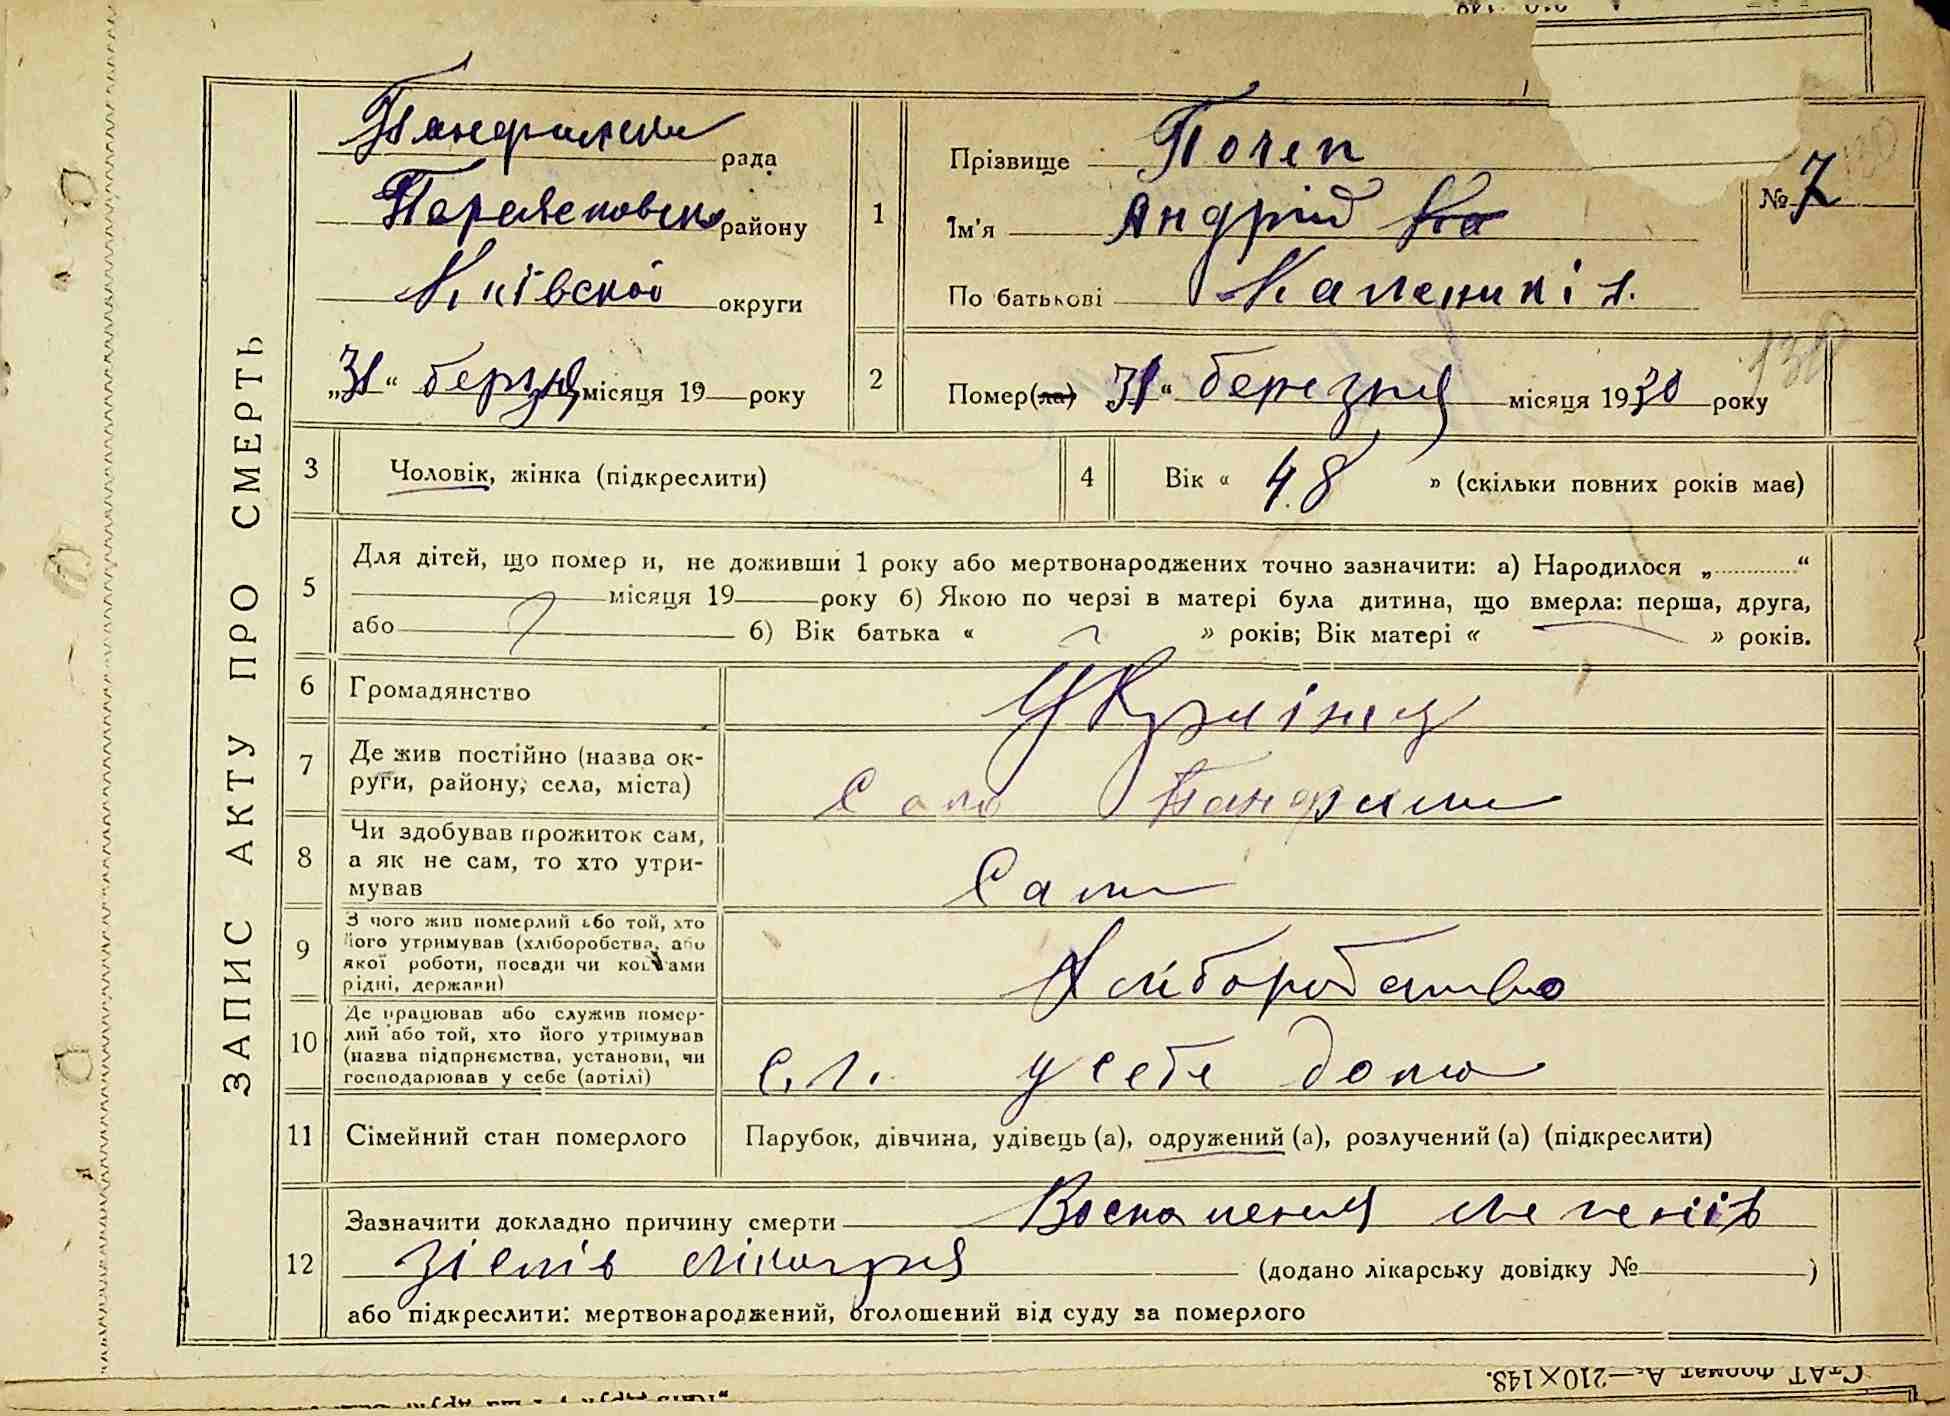 ЗАПИС АКТУ ПРО СМЕРТЬ
Панфилська рада
району
Київської округи
„31“ березня місяця 19 року
1
Прізвище Почеп
Ім'я Андрій
По батькові Калеників.
№ 7
130
2
Помер(ла) „31“ березня місяця 1930 року
3 Чоловік, жінка (підкреслити)
4 Вік « 48 » (скільки повних років має)
5
Для дітей, що помер и, не доживши 1 року або мертвонароджених точно зазначити: а) Народилося „ “
місяця 19 року б) Якою по черзі в матері була дитина, що вмерла: перша, друга,
або б) Вік батька « » років; Вік матері « » років.
6 Громадянство Україна
7
Де жив постійно (назва ок-
руги, району, села, міста)
Село Панфили
8
Чи здобував прожиток сам,
а як не сам, то хто утри-
мував
Сам
9
З чого жив померлий або той, хто
його утримував (хліборобства, або
якої роботи, посади чи коштами
рідні, держави)
Хліборобство
10
Де працював або служив помер-
лий або той, хто його утримував
(назва підприємства, установи, чи
господарював у себе (артілі)
у себе дома
11 Сімейний стан померлого
Парубок, дівчина, удівець (а), одружений (а), розлучений (а) (підкреслити)
12
Зазначити докладно причину смерти Воспаления
(додано лікарську довідку № )
або підкреслити: мертвонароджений, оголошений від суду за померлого
СтАТ формат А₅—210×148.